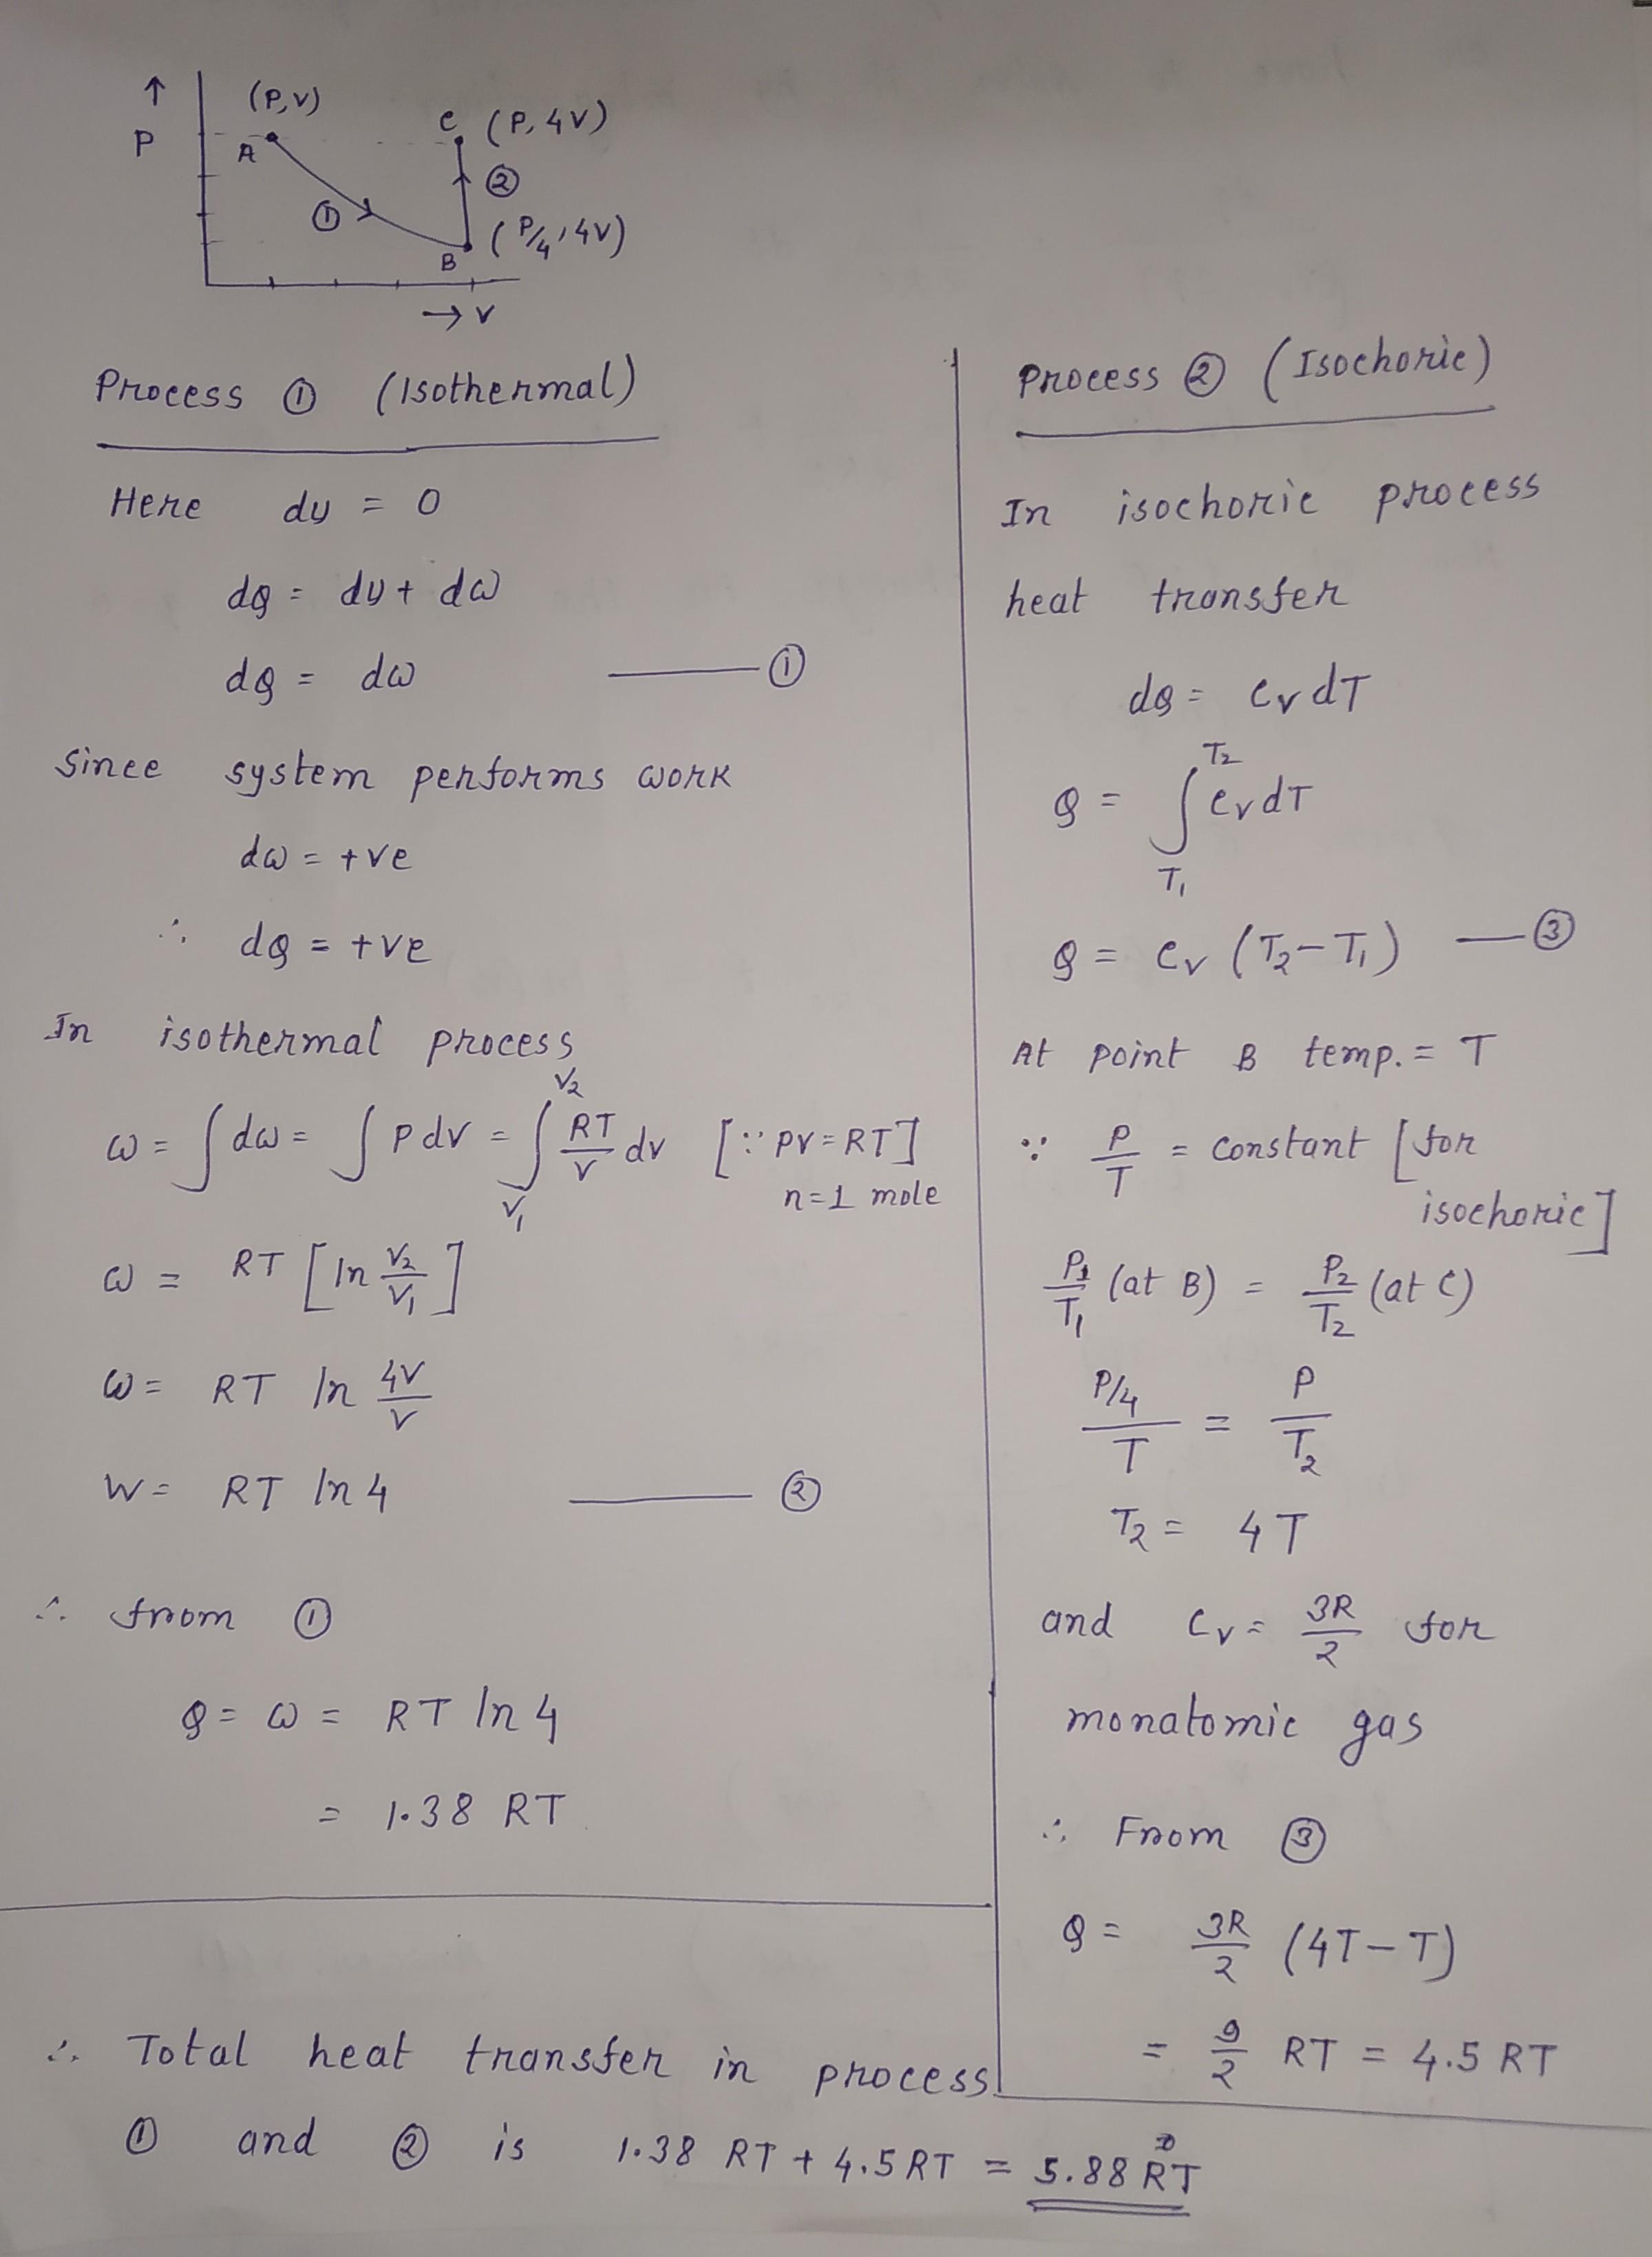 ↑
P
(P,V)
A
C (P, 4V)
②
①
B (P/4, 4V)
→ V
Process ① (Isothermal)
Here du = 0
dQ = du + dω
dQ = dω ——— ①
Since system performs work
dω = +ve
∴ dQ = +ve
In isothermal process
ω = ∫dω = ∫PdV = ∫_{V₁}^{V₂} RT/V dv [∵ PV = RT]
n=1 mole
ω = RT [ln V₂/V₁]
ω = RT ln 4V/V
W = RT ln 4 ——— ②
∴ from ①
Q = ω = RT ln 4
= 1.38 RT
Process ② (Isochoric)
In isochoric process
heat transfer
dQ = CvdT
Q = ∫_{T₁}^{T₂} CvdT
Q = Cv (T₂-T₁) — ③
At point B temp. = T
∵ P/T = constant [for
isochoric]
P₁/T₁ (at B) = P₂/T₂ (at C)
P/4/T = P/T₂
T₂ = 4T
and Cv = 3R/2 for
monatomic gas
∴ From ③
Q = 3R/2 (4T-T)
= 9/2 RT = 4.5 RT
∴ Total heat transfer in process
① and ② is 1.38 RT + 4.5 RT = 5.88 RT